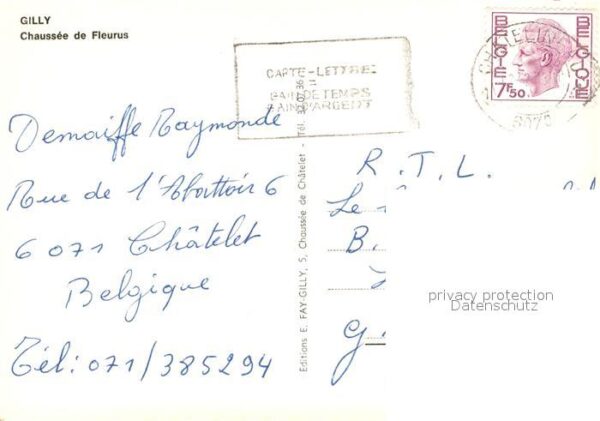 GILLY
Chaussée de Fleurus
BELGIE
BELGIQUE
7F50
CARTE-LETTRE
GAIN DE TEMPS
GAIN D'ARGENT
Demaiffe Raymonde
Rue de l'Abattoir 6
6071 Châtelet
Belgique
Tél: 071/385294
Editions E. FAY-GILLY, 5, Chaussée de Châtelet - Tél.
R.T.L.
Le
B.
G.
privacy protection
Datenschutz